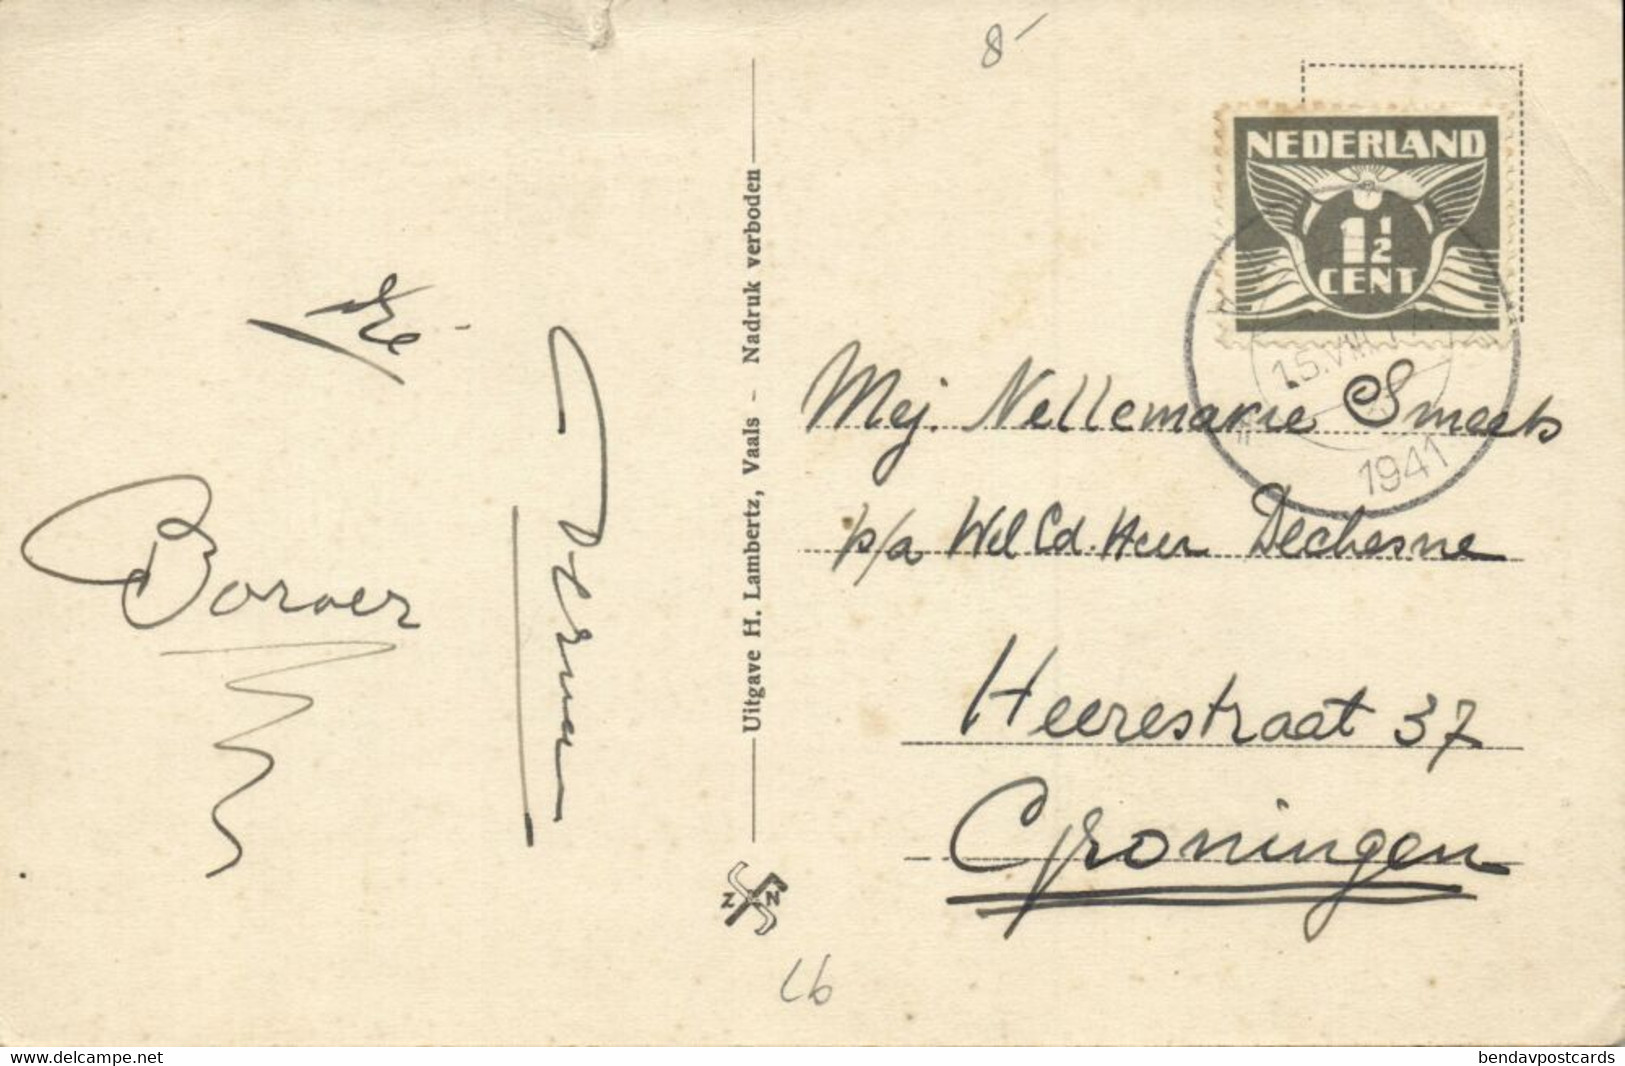 8
NEDERLAND
1½
CENT
15.VIII
1941
Mej. Nellemarie Smeets
p/a Wel Ed. Heer Dechesne
Heerestraat 37
Groningen
Uitgave H. Lambertz, Vaals - Nadruk verboden
Z N
delcampe.net
bendavpostcards